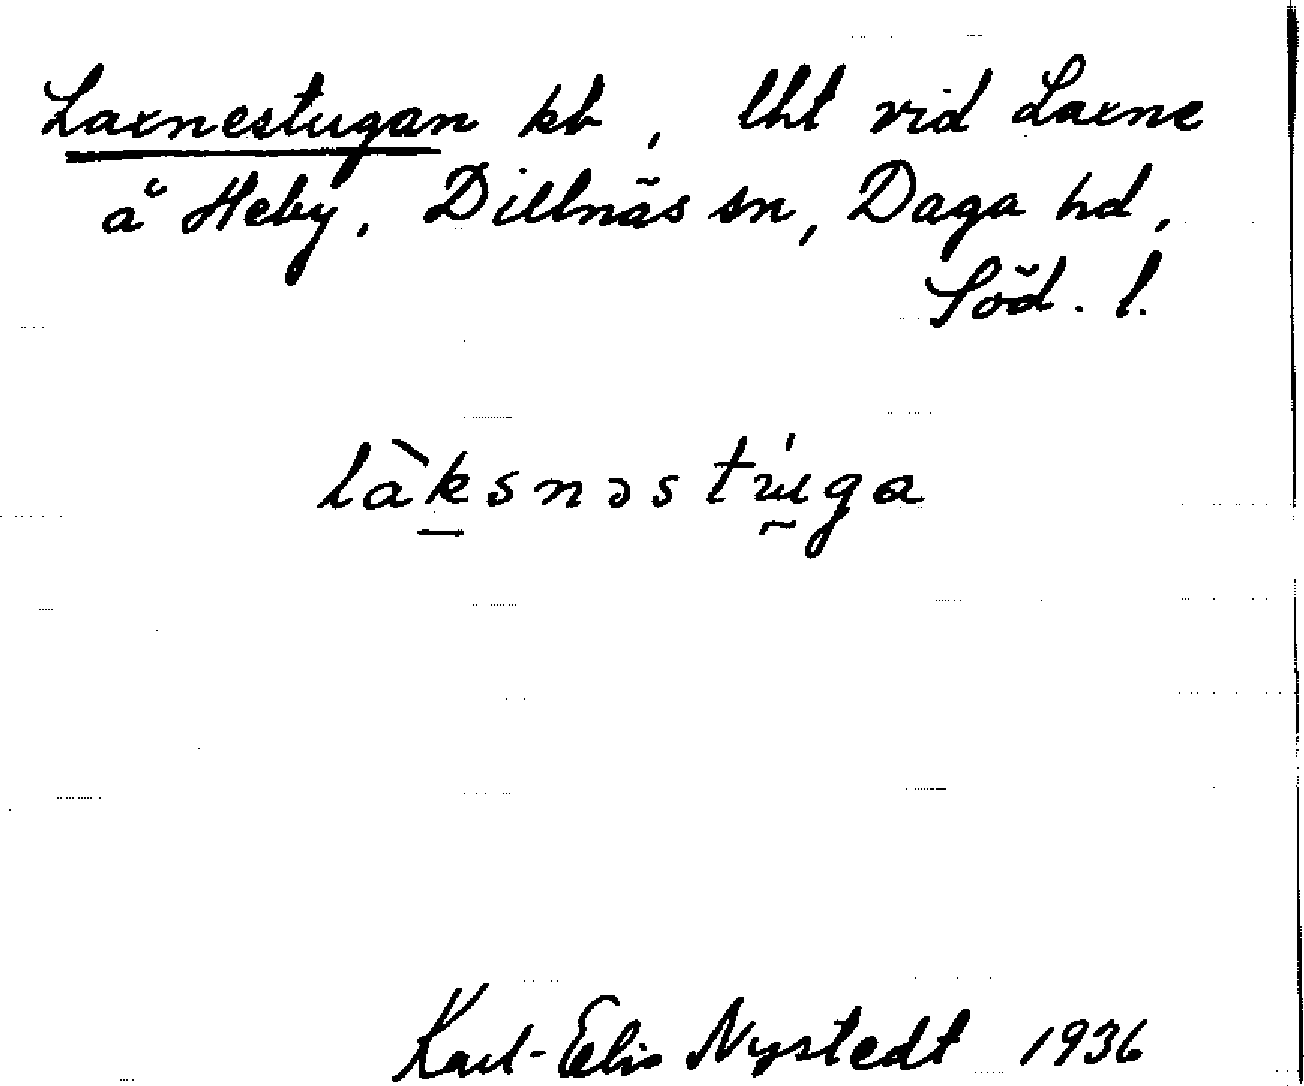 Laxnestugan kb, lht vid Laxne
å Heby, Dillnäs sn, Daga hd,
Söd. l.
làksnəstṵga
Karl-Elis Nystedt 1936